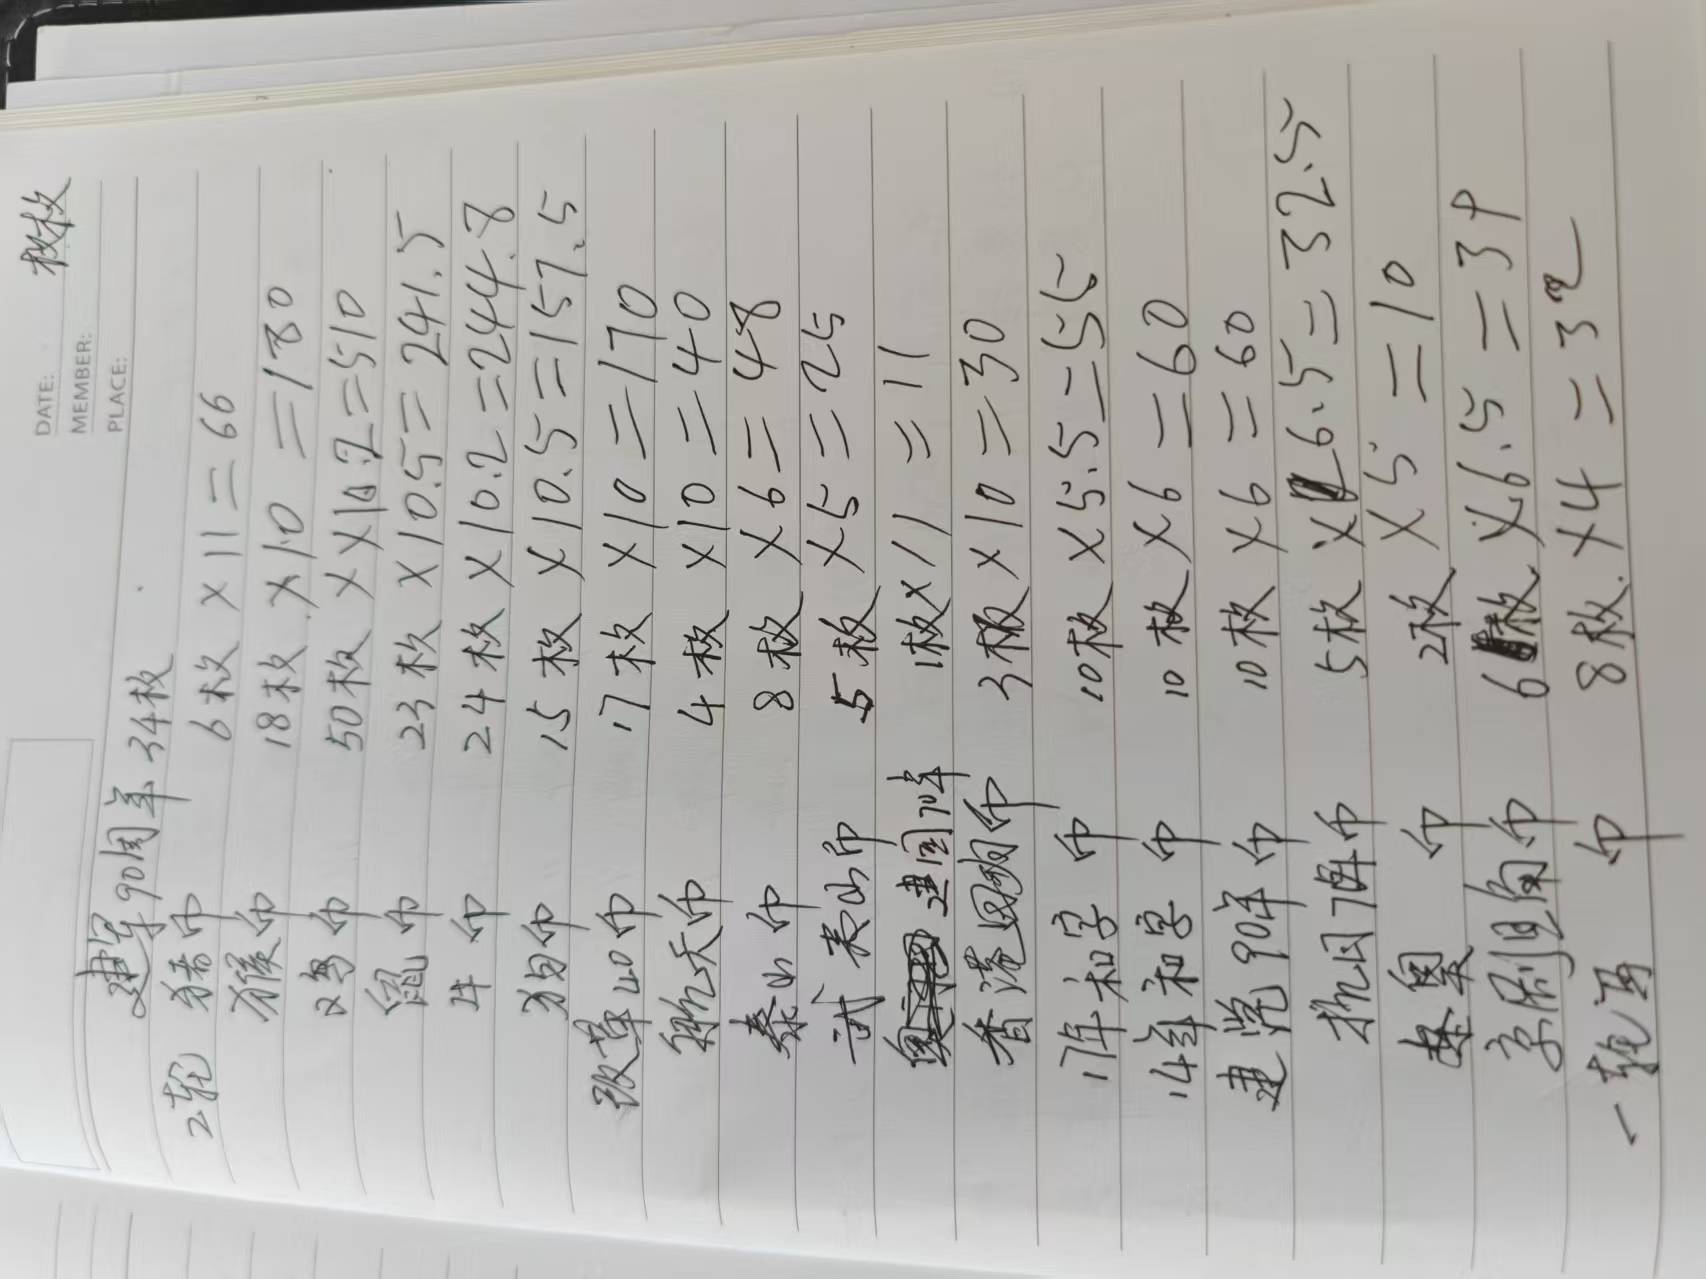 DATE: 枚枚
MEMBER:
PLACE:
建军90周年 34枚
2轮 猪币 6枚 × 11 = 66
猴币 18枚 × 10 = 180
鸡币 50枚 × 10.2 = 510
鼠币 23枚 × 10.5 = 241.5
牛币 24枚 × 10.2 = 244.8
狗币 15枚 × 10.5 = 157.5
改革40币 17枚 × 10 = 170
航天币 4枚 × 10 = 40
泰山币 8枚 × 6 = 48
武夷山币 5枚 × 5 = 25
建国70年 1枚 × 11 = 11
香港回归币 3枚 × 10 = 30
17年和字币 10枚 × 5.5 = 55
14年和字币 10枚 × 6 = 60
建党90年币 10枚 × 6 = 60
抗日70年币 5枚 × 6.5 = 32.5
奥币 2枚 × 5 = 10
京剧脸谱币 6枚 × 6.5 = 39
一轮币 8枚 × 4 = 32